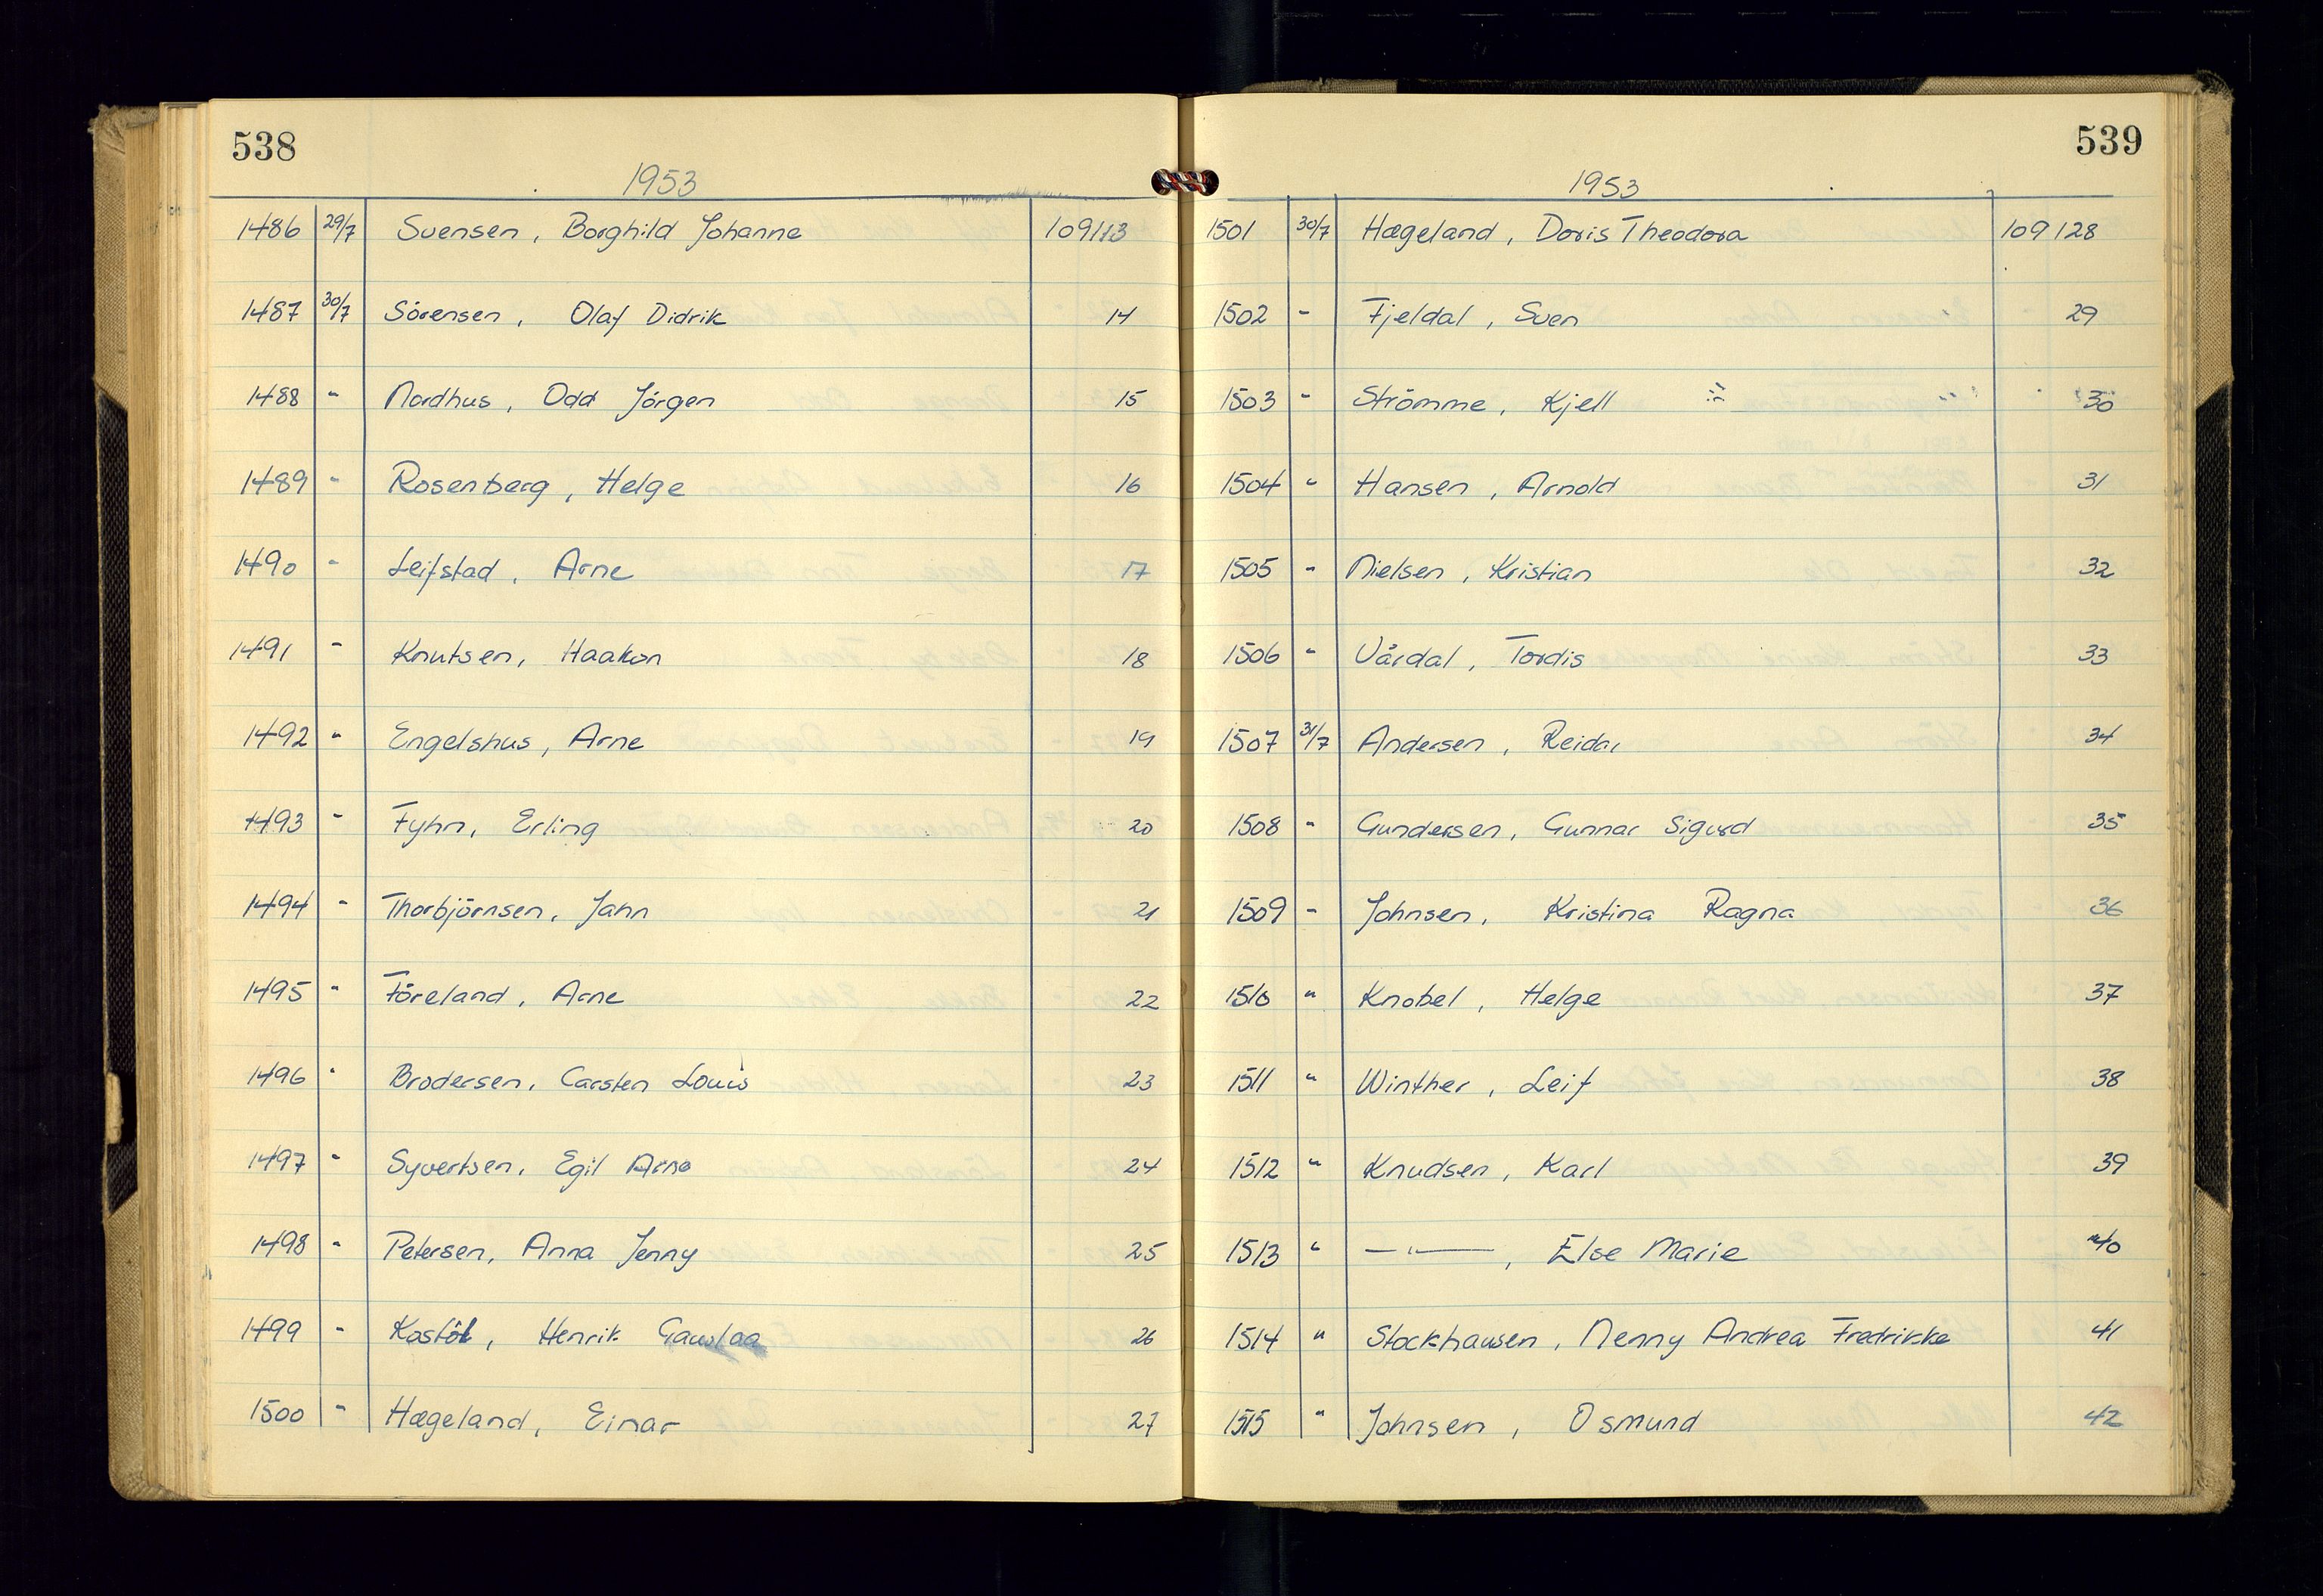 538
1953
1486 29/7 Svensen, Borghild Johanne 109113
1487 30/7 Sörensen, Olaf Didrik 14
1488 " Nordhus, Odd Jörgen 15
1489 " Rosenberg, Helge 16
1490 " Leifstad, Arne 17
1491 " Knutsen, Haakon 18
1492 " Engelshus, Arne 19
1493 " Fyhn, Erling 20
1494 " Thorbjörnsen, Jahn 21
1495 " Föreland, Arne 22
1496 " Brodersen, Carsten Louis 23
1497 " Syvertsen, Egil Arne 24
1498 " Petersen, Anna Jenny 25
1499 " Kastöl, Henrik Gauslaa 26
1500 " Hægeland, Einar 27
539
1953
1501 30/7 Hægeland, Doris Theodora 109128
1502 " Fjeldal, Sven 29
1503 " Strömme, Kjell 30
1504 " Hansen, Arnold 31
1505 " Nielsen, Kristian 32
1506 " Vårdal, Tordis 33
1507 31/7 Andersen, Reidar 34
1508 " Gundersen, Gunnar Sigurd 35
1509 " Johnsen, Kristina Ragna 36
1510 " Knobel, Helge 37
1511 " Winther, Leif 38
1512 " Knudsen, Karl 39
1513 " —"—, Else Marie 40
1514 " Stockhausen, Nenny Andrea Fredrikke 41
1515 " Johnsen, Osmund 42